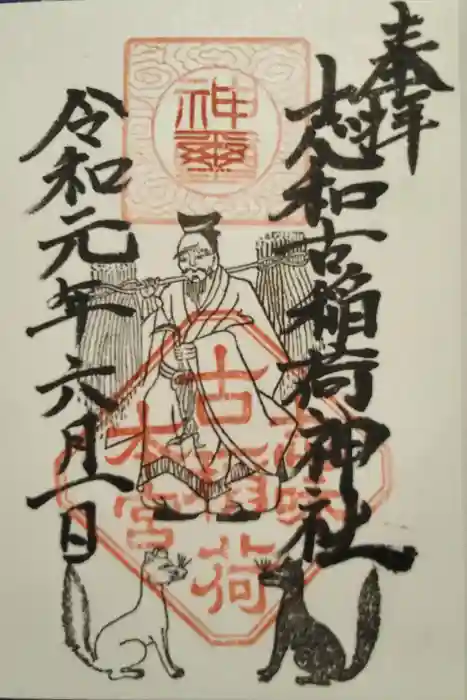 奉拝
志和古稲荷神社
令和元年六月一日
神璽
古稲荷
本宮